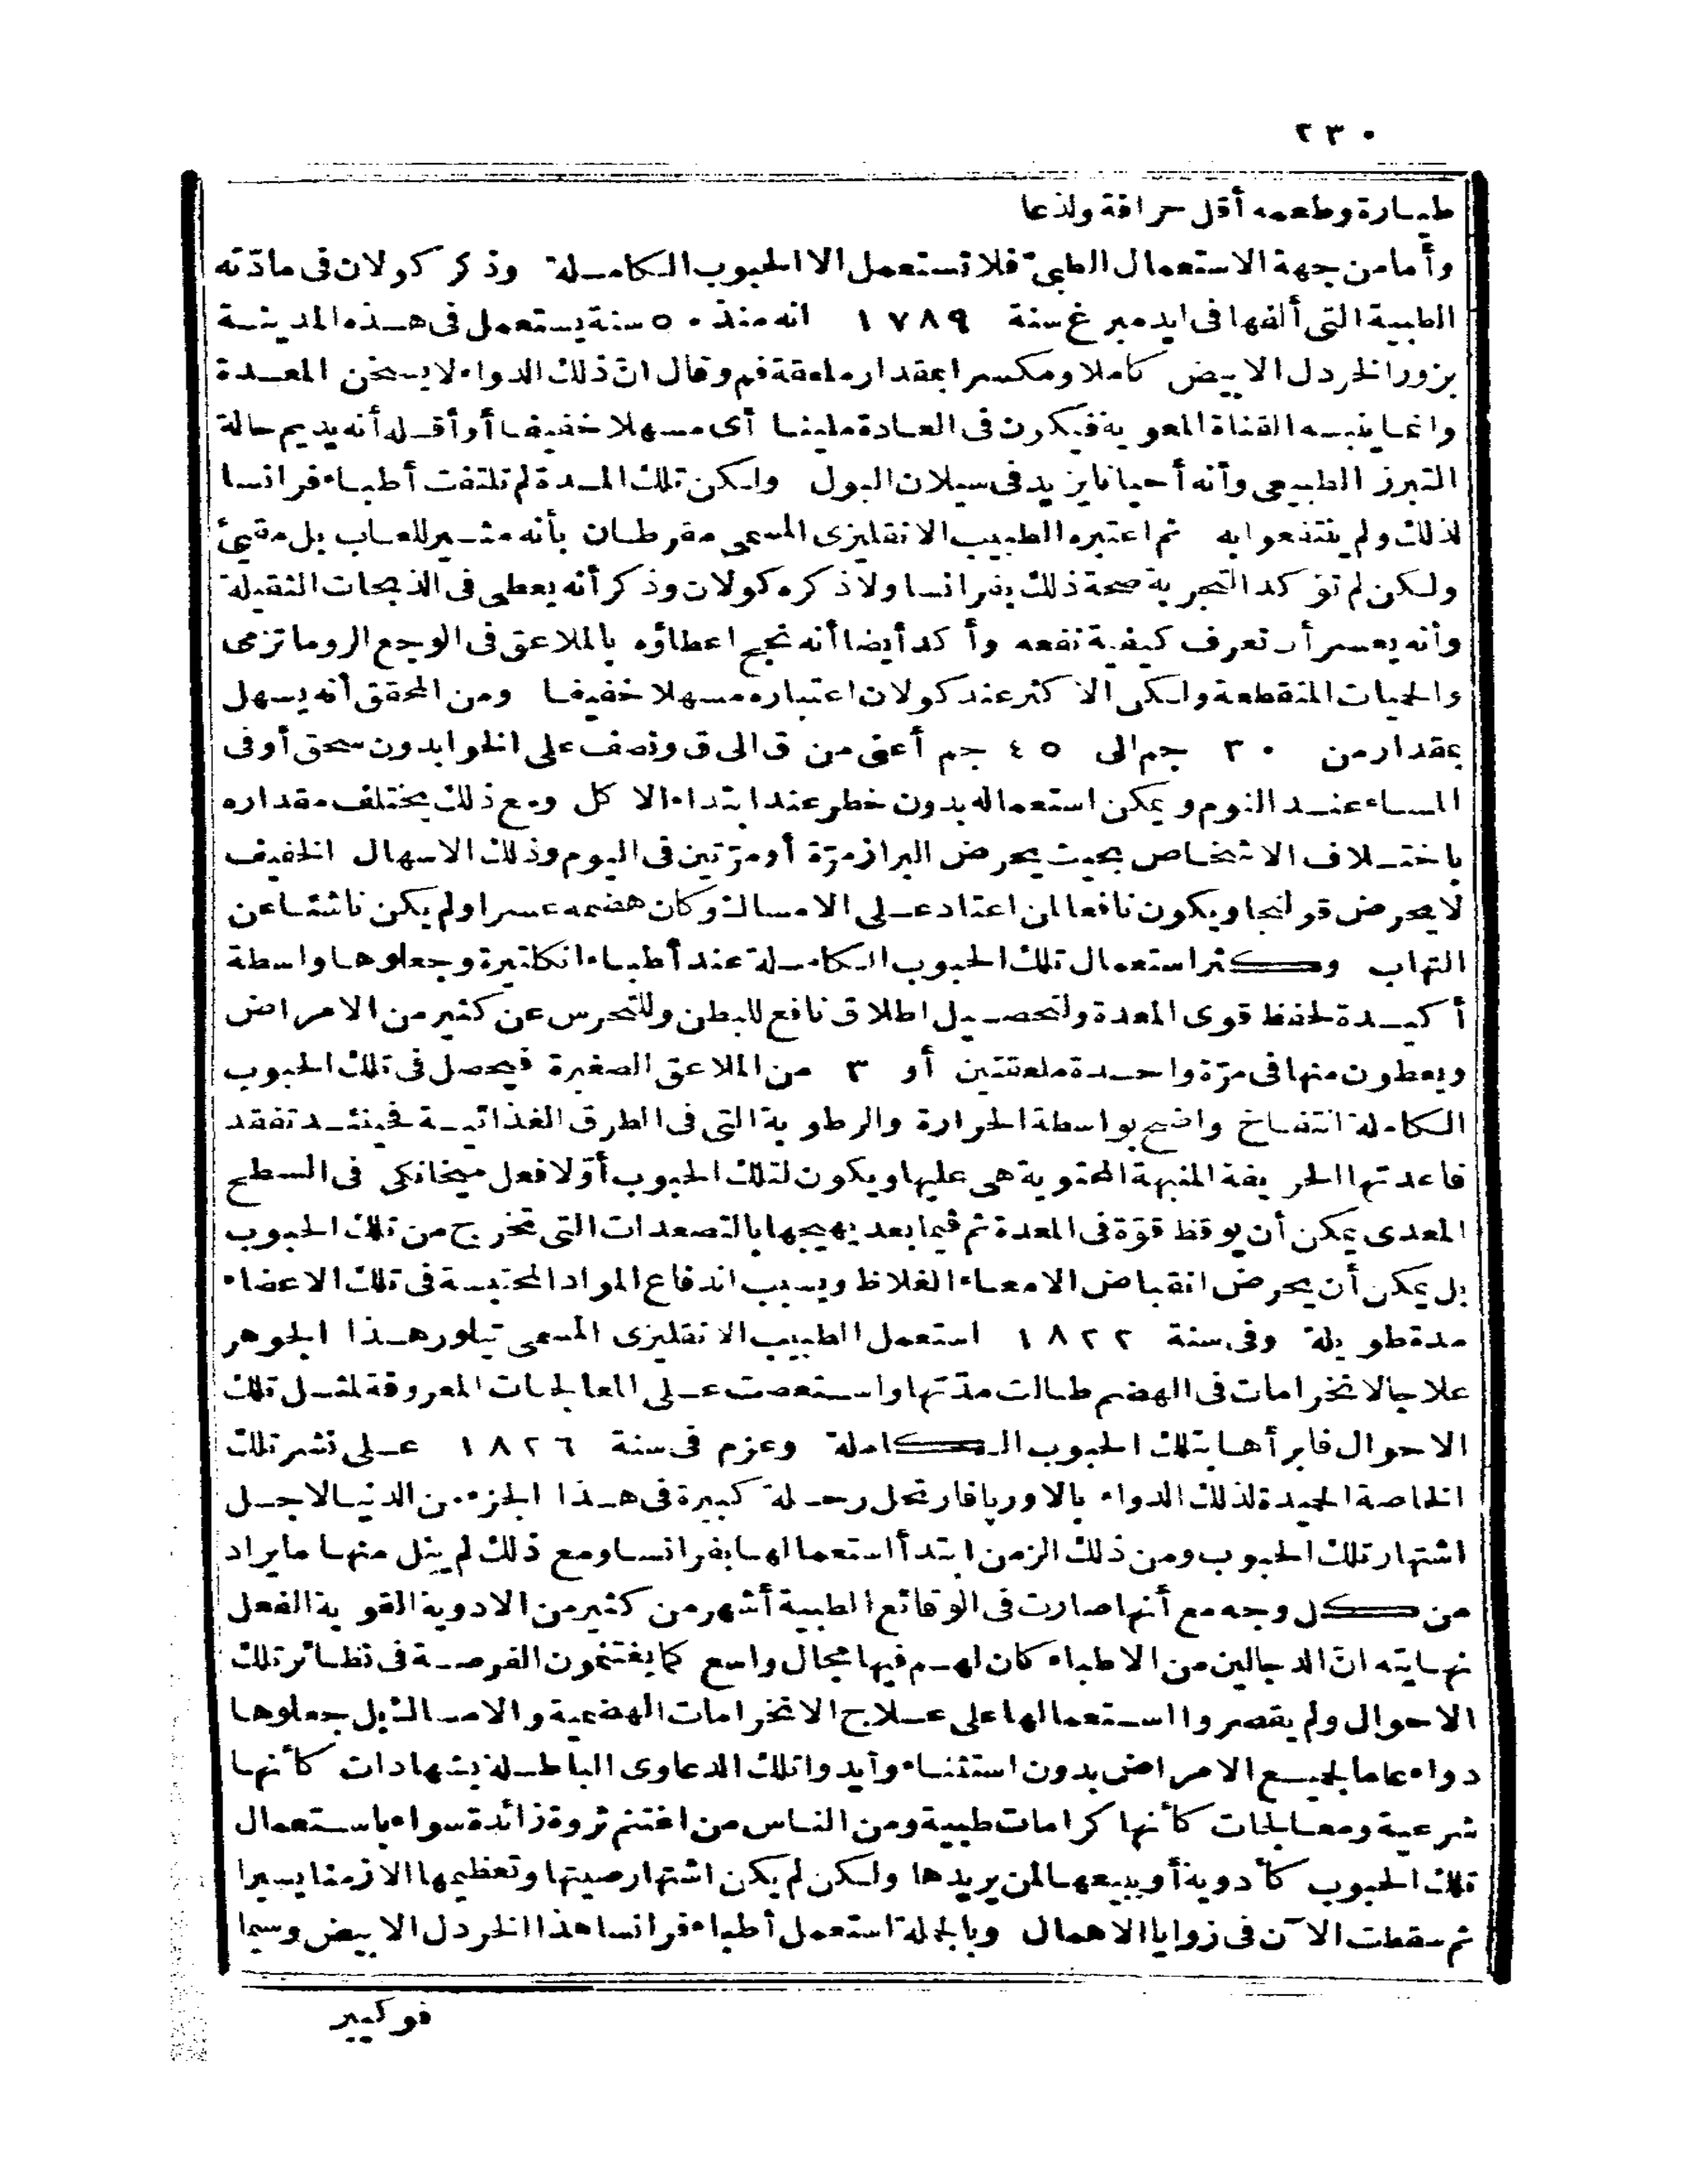 ٢٣٠
طيارة وطعمه أقل حرافة ولذعا
وأما من جهة الاستعمال الطبى فلا تستعمل الا الحبوب الكاملة وذكر كولان فى مادّته
الطبية التى ألفها فى ايدمبرغ سنة ١٧٨٩ انه منذ ٥٠ سنة يستعمل فى هذه المدينة
بزور الخردل الابيض كاملا ومكسرا بمقدار ملعقة فم وقال انّ ذلك الدواء لا يسخن المعدة
وانما ينبه القناة المعوية فيكون فى العادة ملينا أى مسهلا خفيفا أو أقله أنه يديم حالة
التبرز الطبيعى وأنه أحيانا يزيد فى سيلان البول ولكن تلك المدة لم تلتفت أطباء فرانسا
لذلك ولم ينتفعوا به ثم اعتبره الطبيب الانقليزى المسمى مقرطان بأنه مثير للعاب بل مقيئ
ولكن لم تؤكد التجربة صحة ذلك بفرانسا ولا ذكره كولان وذكر أنه يعطى فى الذبحات الثقيلة
وأنه يعسر أن تعرف كيفية نفعه وأكد أيضا أنه نجح اعطاؤه بالملاعق فى الوجع الروماتزمى
والحميات المتقطعة ولكن الاكثر عند كولان اعتباره مسهلا خفيفا ومن المحقق أنه يسهل
بمقدار من ٣٠ جم الى ٤٥ جم أعنى من ق الى ق ونصف على الخوا بدون سحق أو فى
المساء عند النوم ويمكن استعماله بدون خطر عند ابتداء الاكل ومع ذلك يختلف مقداره
باختلاف الاشخاص بحيث يحرض البراز مرّة أو مرّتين فى اليوم وذلك الاسهال الخفيف
لا يحرض قولنجا ويكون نافعا لمن اعتاد على الامساك وكان هضمه عسرا ولم يكن ناشئا عن
التهاب وكثر استعمال تلك الحبوب الكاملة عند أطباء انكلتيرة وجعلوها واسطة
أكيدة لحفظ قوى المعدة ولتحصيل اطلاق نافع للبطن وللتحرس عن كثير من الامراض
ويعطون منها فى مرّة واحدة ملعقتين أو ٣ من الملاعق الصغيرة فيحصل فى تلك الحبوب
الكاملة انتفاخ واضح بواسطة الحرارة والرطوبة التى فى الطرق الغذائية فحينئذ تفقد
قاعدتها الحريفة المنبهة المحتوية هى عليها ويكون لتلك الحبوب أوّلا فعل ميخانكى فى السطح
المعدى يمكن أن يوقظ قوّة فى المعدة ثم فيما بعد يهيجها بالتصعدات التى تخرج من تلك الحبوب
بل يمكن أن يحرض انقباض الامعاء الغلاظ ويسبب اندفاع المواد المحتبسة فى تلك الاعضاء
مدة طويلة وفى سنة ١٨٢٢ استعمل الطبيب الانقليزى المسمى تيلور هذا الجوهر
علاجا لانخرامات فى الهضم طالت مدّتها واستعصت على المعالجات المعروفة لمثل تلك
الاحوال فابرأها بتلك الحبوب الكاملة وعزم فى سنة ١٨٢٦ على نشر تلك
الخاصة الحميدة لذلك الدواء بالاوربا فارتحل رحلة كبيرة فى هذا الجزء من الدنيا لاجل
اشتهار تلك الحبوب ومن ذلك الزمن ابتدأ استعمالها بفرانسا ومع ذلك لم ينل منها ما يراد
من كل وجه مع أنها صارت فى الوقائع الطبية أشهر من كثير من الادوية القوية الفعل
نهايته انّ الدجالين من الاطباء كان لهم فيها مجال واسع كما يغتنمون الفرصة فى نظائر تلك
الاحوال ولم يقصروا استعمالها على علاج الانخرامات الهضمية والامساك بل جعلوها
دواء عاما لجميع الامراض بدون استثناء وأيدوا تلك الدعاوى الباطلة بشهادات كأنها
شرعية ومعالجات كأنها كرامات طبية ومن الناس من اغتنم ثروة زائدة سواء باستعمال
تلك الحبوب كأدوية أو ببيعها لمن يريدها ولكن لم يكن اشتهار صيتها وتعظيمها الا زمنا يسيرا
ثم سقطت الآن فى زوايا الاهمال وبالجملة استعمل أطباء فرانسا هذا الخردل الابيض وسيما
فوكيير